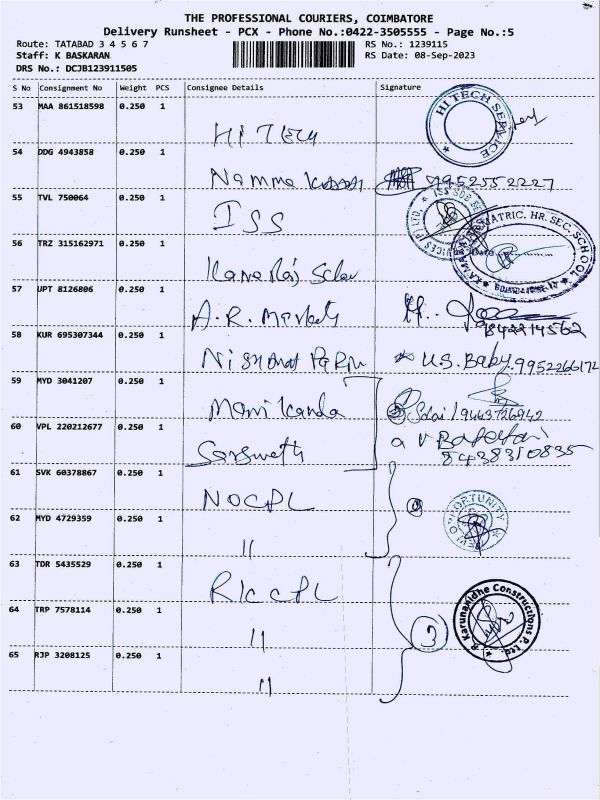 THE PROFESSIONAL COURIERS, COIMBATORE
Delivery Runsheet - PCX - Phone No.:0422-3505555 - Page No.:5
Route: TATABAD 3 4 5 6 7
RS No.: 1239115
Staff: K BASKARAN
RS Date: 08-Sep-2023
DRS No.: DCJB123911505
S No Consignment No Weight PCS Consignee Details Signature
53 MAA 861518598 0.250 1
HI TECH
HI TECH SERVICE
54 DDG 4943858 0.250 1
Namma 9952552227
55 TVL 750064 0.250 1
ISS
56 TRZ 315162971 0.250 1
MATRIC. HR. SEC. SCHOOL
57 UPT 8126806 0.250 1
A.R. 
58 KUR 695307344 0.250 1
U.S. Baby. 9952266172
59 MYD 3041207 0.250 1
Mani Kanda 9443726942
60 VPL 220212677 0.250 1
8438310835
61 SVK 60378867 0.250 1
NOCPL
OPPORTUNITY
62 MYD 4729359 0.250 1
"
63 TDR 5435529 0.250 1
64 TRP 7578114 0.250 1
"
3
P. Karunakidhe Constructions P. Ltd.
65 RJP 3208125 0.250 1
"